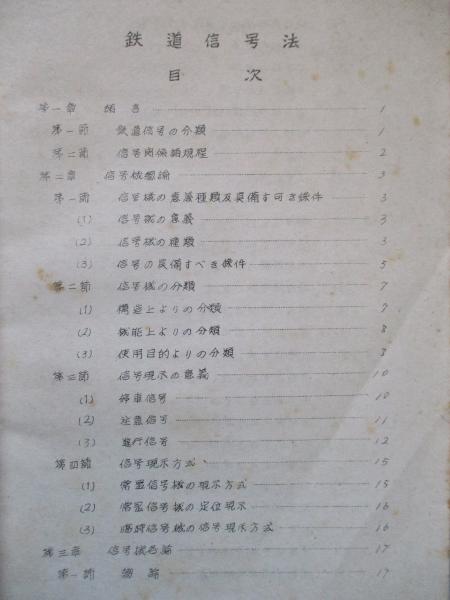 鉄道信号法
目次
第一章 緒言 1
第一節 鉄道信号の分類 1
第二節 信号関係諸規程 2
第二章 信号機総論 3
第一節 信号機の意義種類及具備す可き條件 3
(1) 信号機の意義 3
(2) 信号機の種類 3
(3) 信号の具備すべき條件 5
第二節 信号機の分類 7
(1) 構造上よりの分類 7
(2) 機能上よりの分類 8
(3) 使用目的よりの分類 8
第三節 信号現示の意義 10
(1) 停車信号 10
(2) 注意信号 11
(3) 進行信号 12
第四節 信号現示方式 15
(1) 常置信号機の現示方式 15
(2) 常置信号機の定位現示 16
(3) 臨時信号機の信号現示方式 16
第三章 信号機各論 17
第一節 総論 17